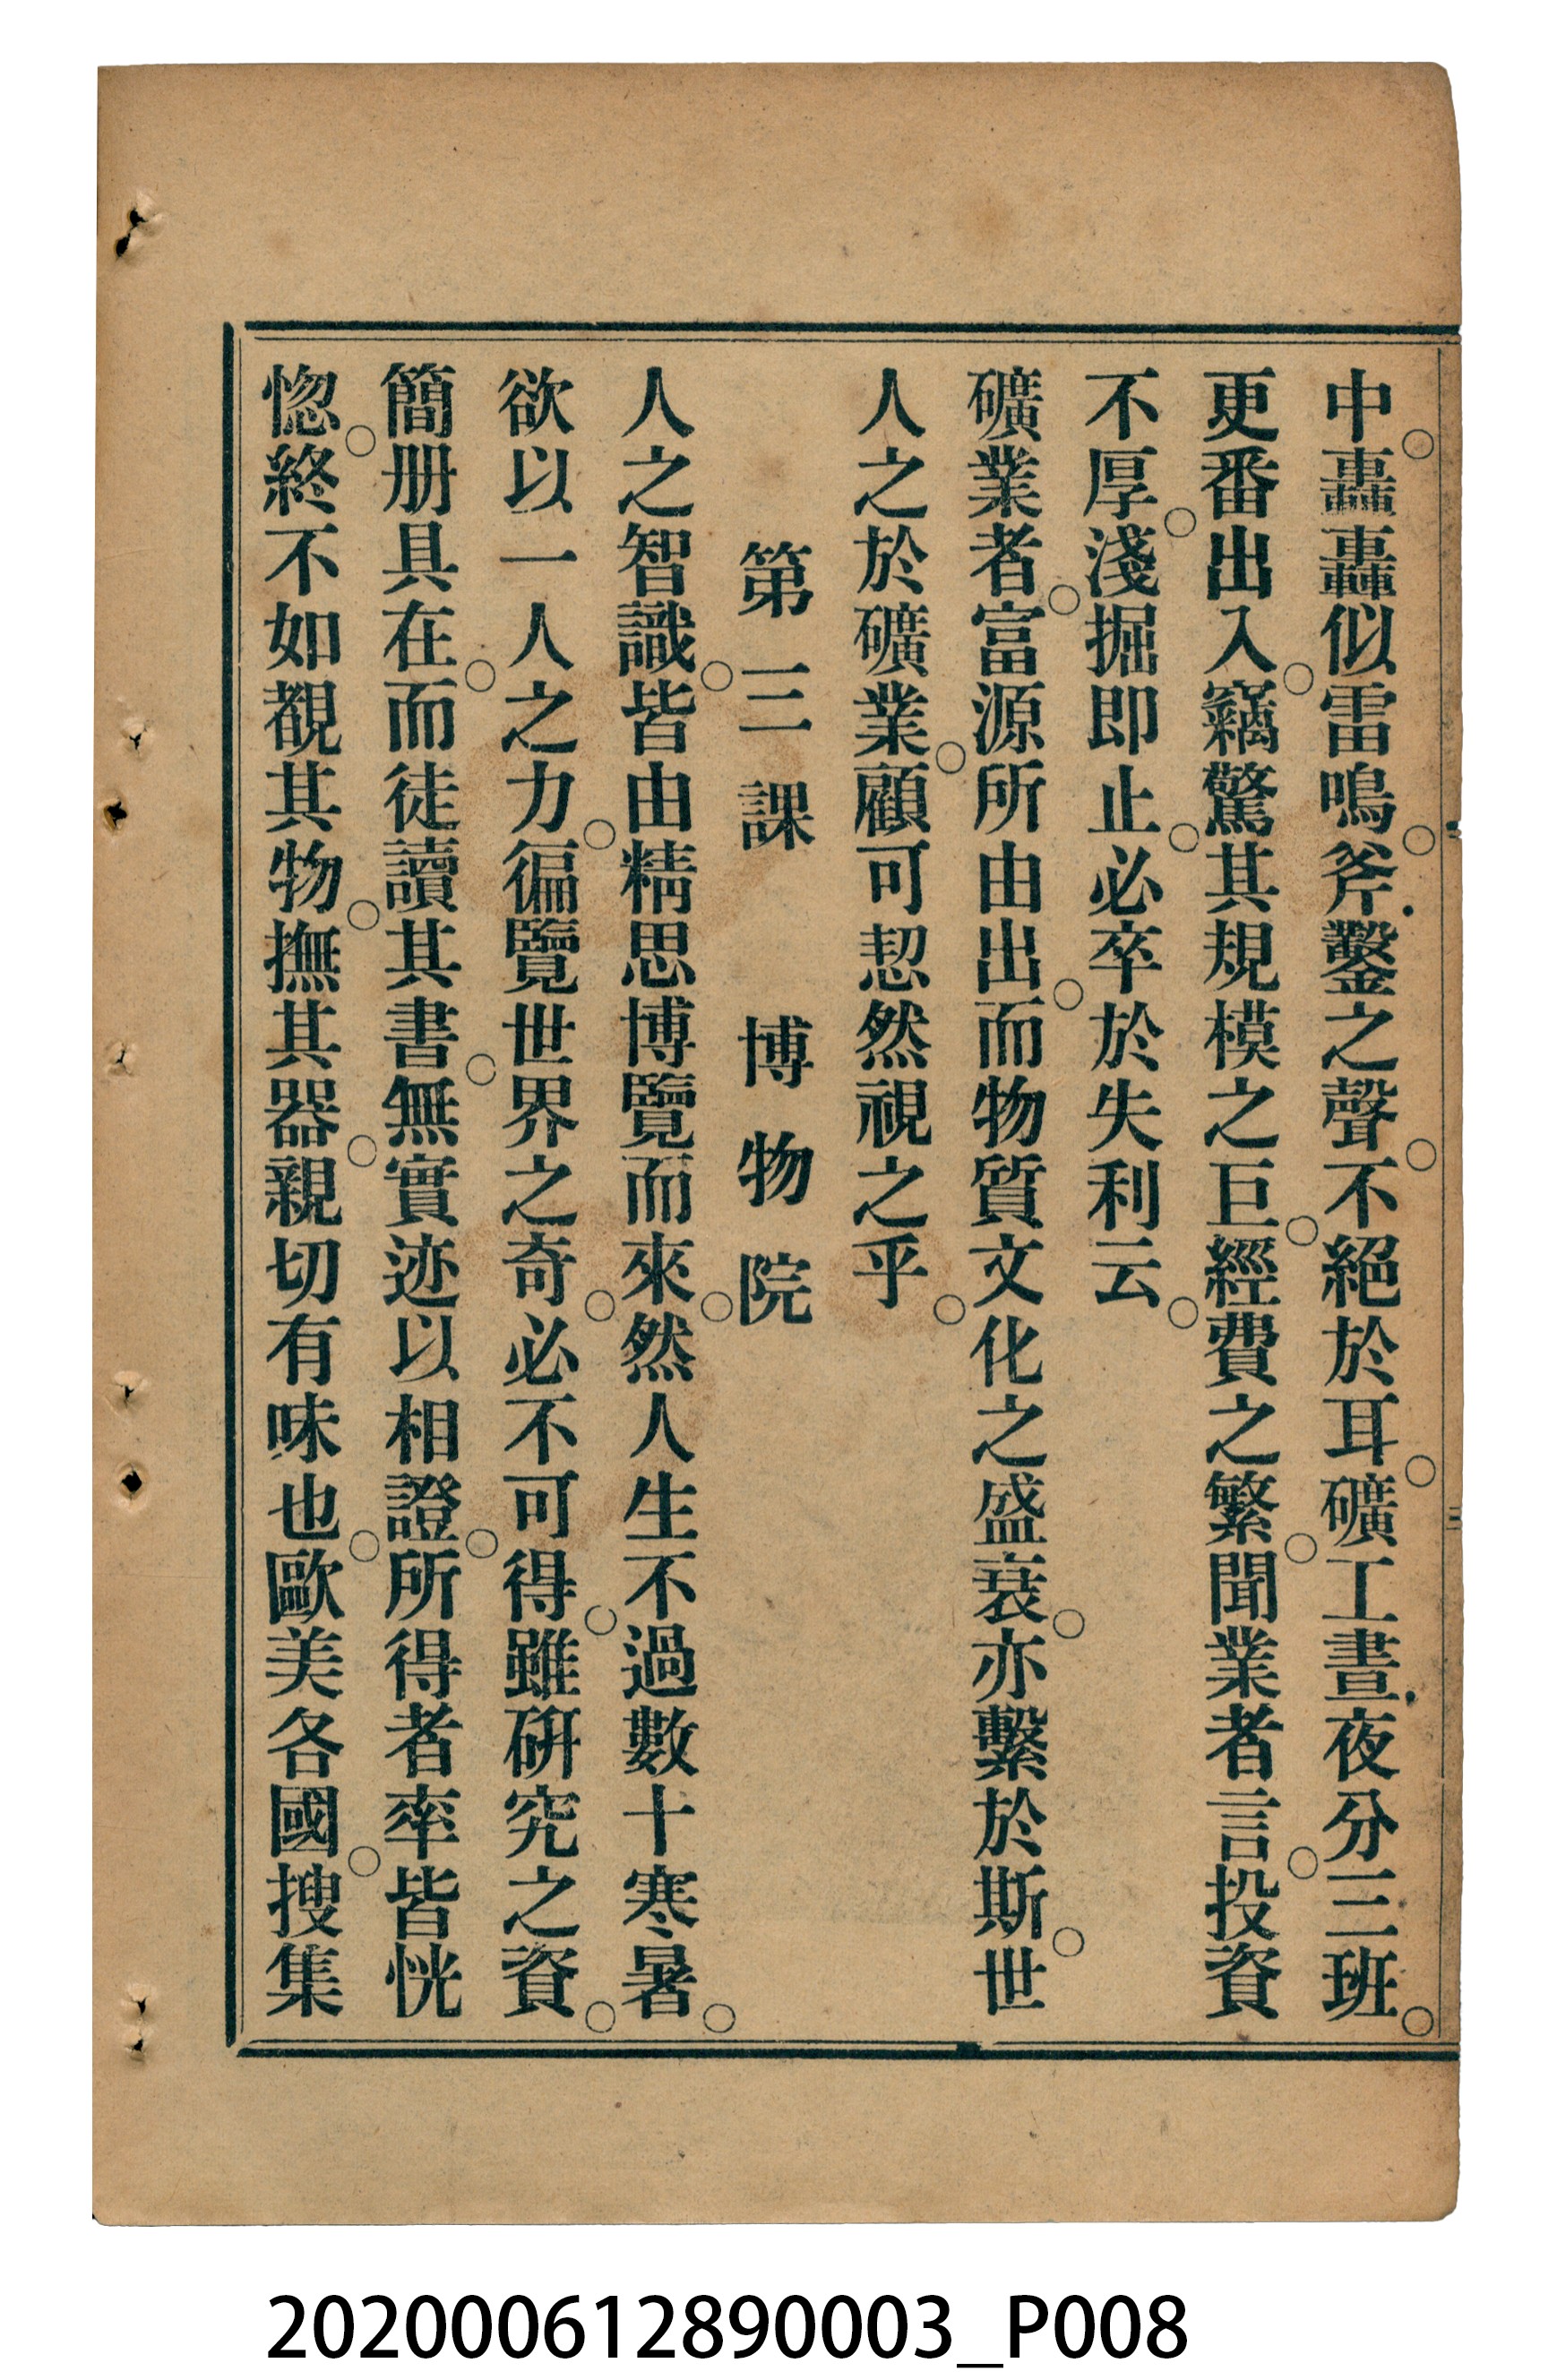 中○轟轟似雷鳴○斧.鑿之聲○不絕於耳○礦工晝.夜分三班○
更番出入○竊驚其規模之巨○經費之繁○聞業者言○投資
不厚○淺掘即止○必卒於失利云○
礦業者○富源所由出○而物質文化之盛衰○亦繫於斯○世
人之於礦業○顧可恝然視之乎○
第三課　博物院
人之智識○皆由精思博覽而來○然人生不過數十寒暑○
欲以一人之力○徧覽世界之奇○必不可得○雖研究之資○
簡册具在○而徒讀其書○無實迹以相證○所得者率皆恍
惚○終不如覩其物○撫其器○親切有味也○歐美各國○搜集
202000612890003_P008